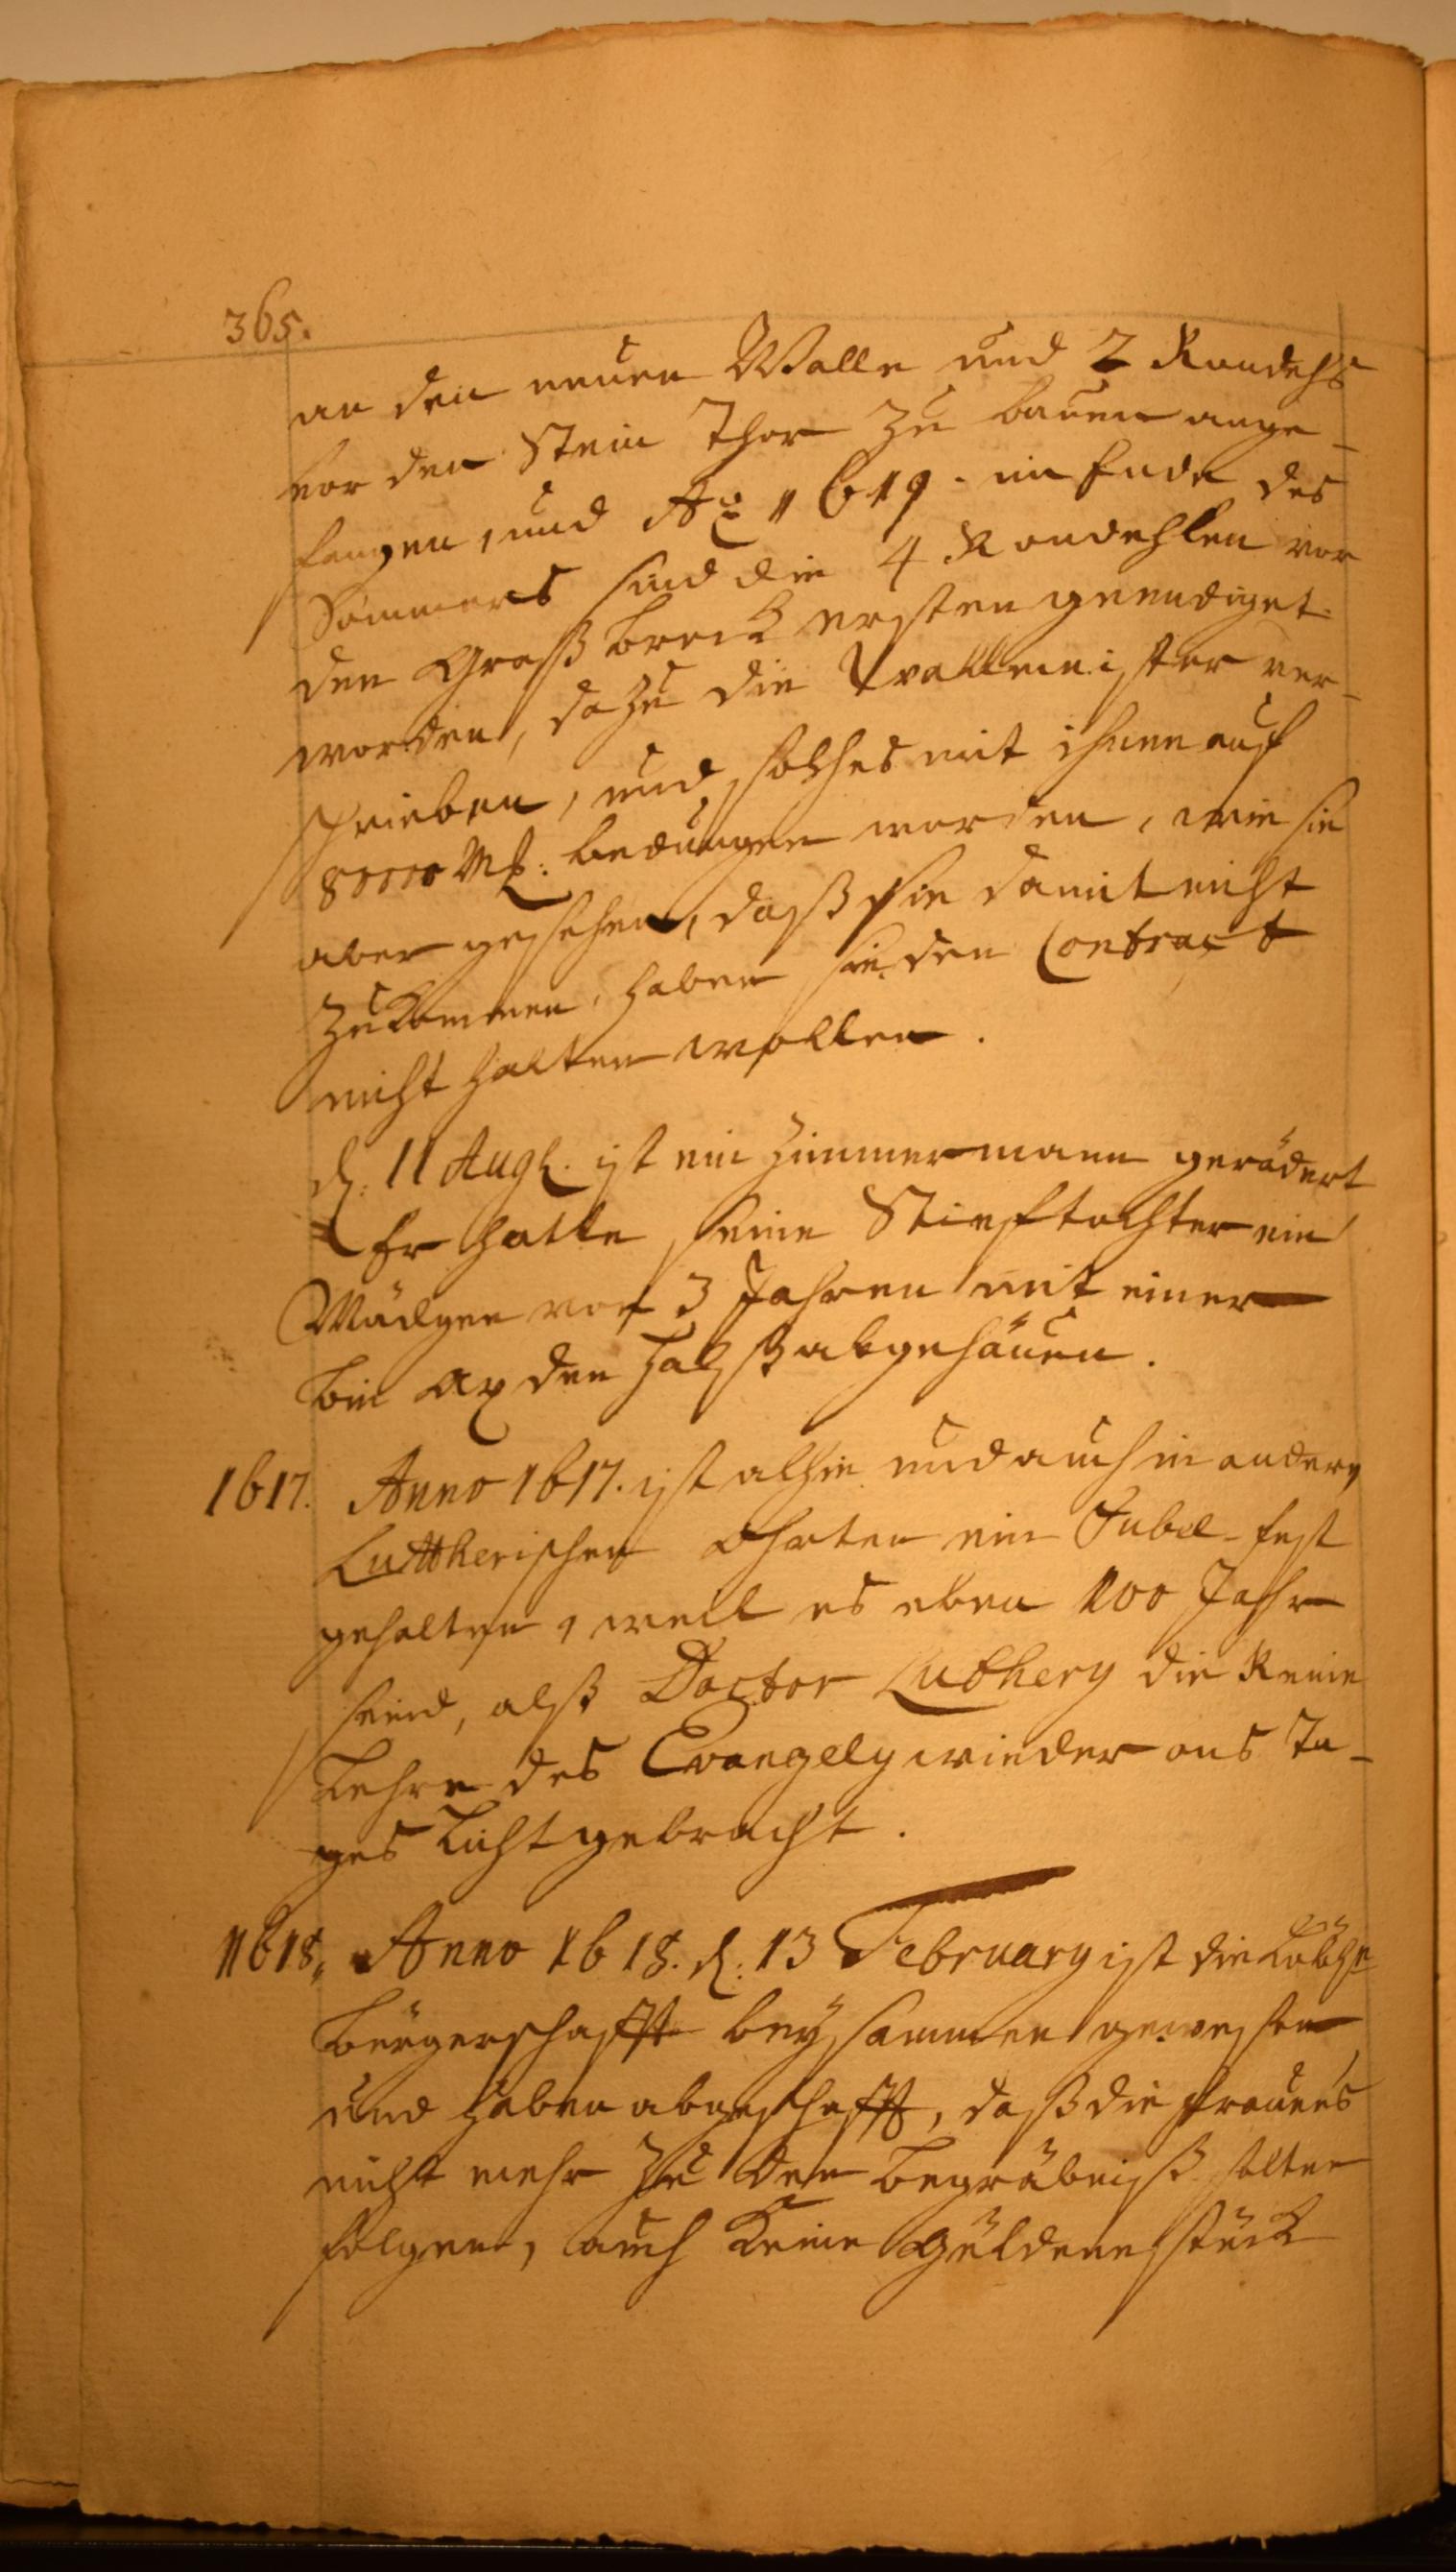 365.
an den neuen Walle und 2 Rondehls
vor den Stein Thor zu bauen ange-
fangen, und Ao 1619. im Ende des
Sommers sind die 4 Rondehlen vor
den Graßbrock ersten geendiget
worden, dazu die Wallmeister ver-
schrieben, und solches mit ihnen auf
80000 Mk: bedungen worden, wie sie
aber gesehen, daß sie damit nicht
zukommen, haben sie den Contract
nicht halten wollen.
d. 11 Augl. ist ein Zimmermann gerädert
Er hatte seine Stieftochter ein
Mädgen von 3 Jahren mit einer
bin Ax den Halß abgehäuen.
1617. Anno 1617. ist alhie und auch in andern
Luttherischen Ohrten ein Jubel-fest
gehalten, weil es eben 100 Jahr
seind, alß Doctor Luthery die Reine
Lehre des Evangely wieder ans Ta-
ges Licht gebracht.
1618. Anno 1618. d. 13 February ist die Löbl.
Bürgerschafft beysammen gewesen
und haben abgeschafft, daß die Frauens
nicht mehr zu den Begräbniß solten
folgen, auch keine güldene stück